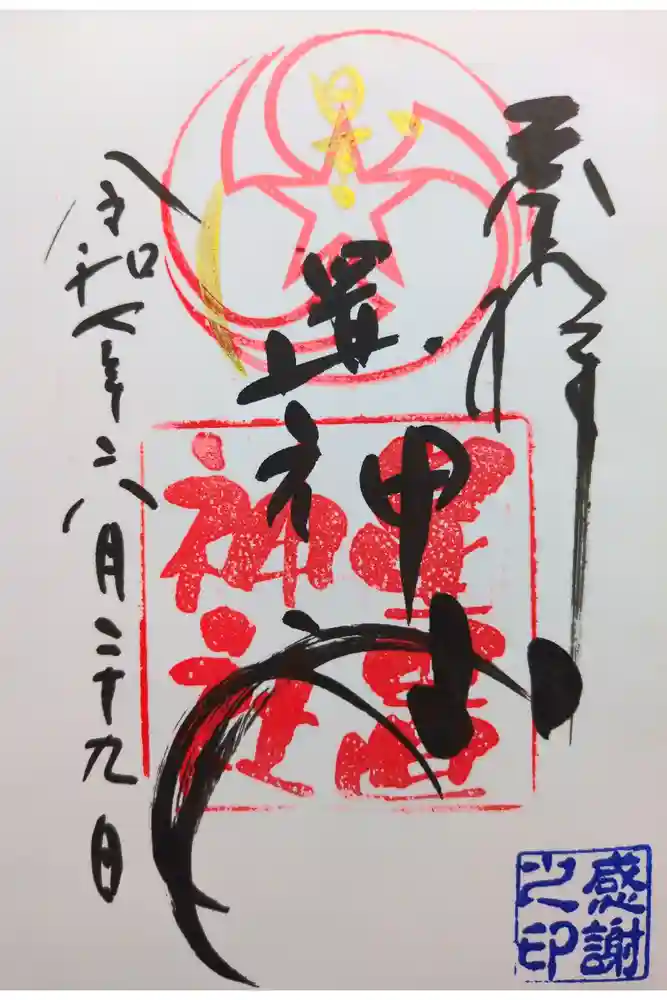 奉拝
星置神社
星置
神社
令和七年六月二十九日
感謝
之印